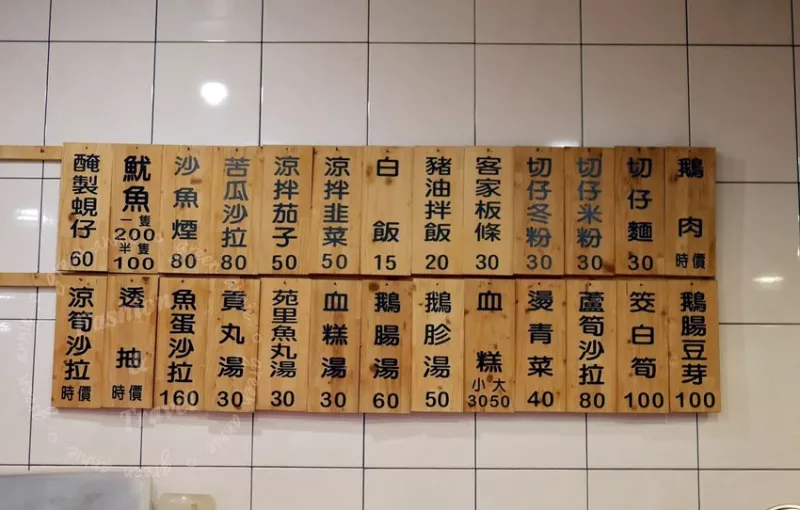 鵝肉 時價
切仔麵 30
切仔米粉 30
切仔冬粉 30
客家板條 30
豬油拌飯 20
白飯 15
涼拌韭菜 50
涼拌茄子 50
苦瓜沙拉 80
沙魚煙 80
魷魚 一隻 200 半隻 100
醃製蜆仔 60
鵝腸豆芽 100
筊白筍 100
蘆筍沙拉 80
燙青菜 40
血糕 小30 大50
鵝胗湯 50
鵝腸湯 60
血糕湯 30
苑里魚丸湯 30
貢丸湯 30
魚蛋沙拉 160
透抽 時價
涼筍沙拉 時價